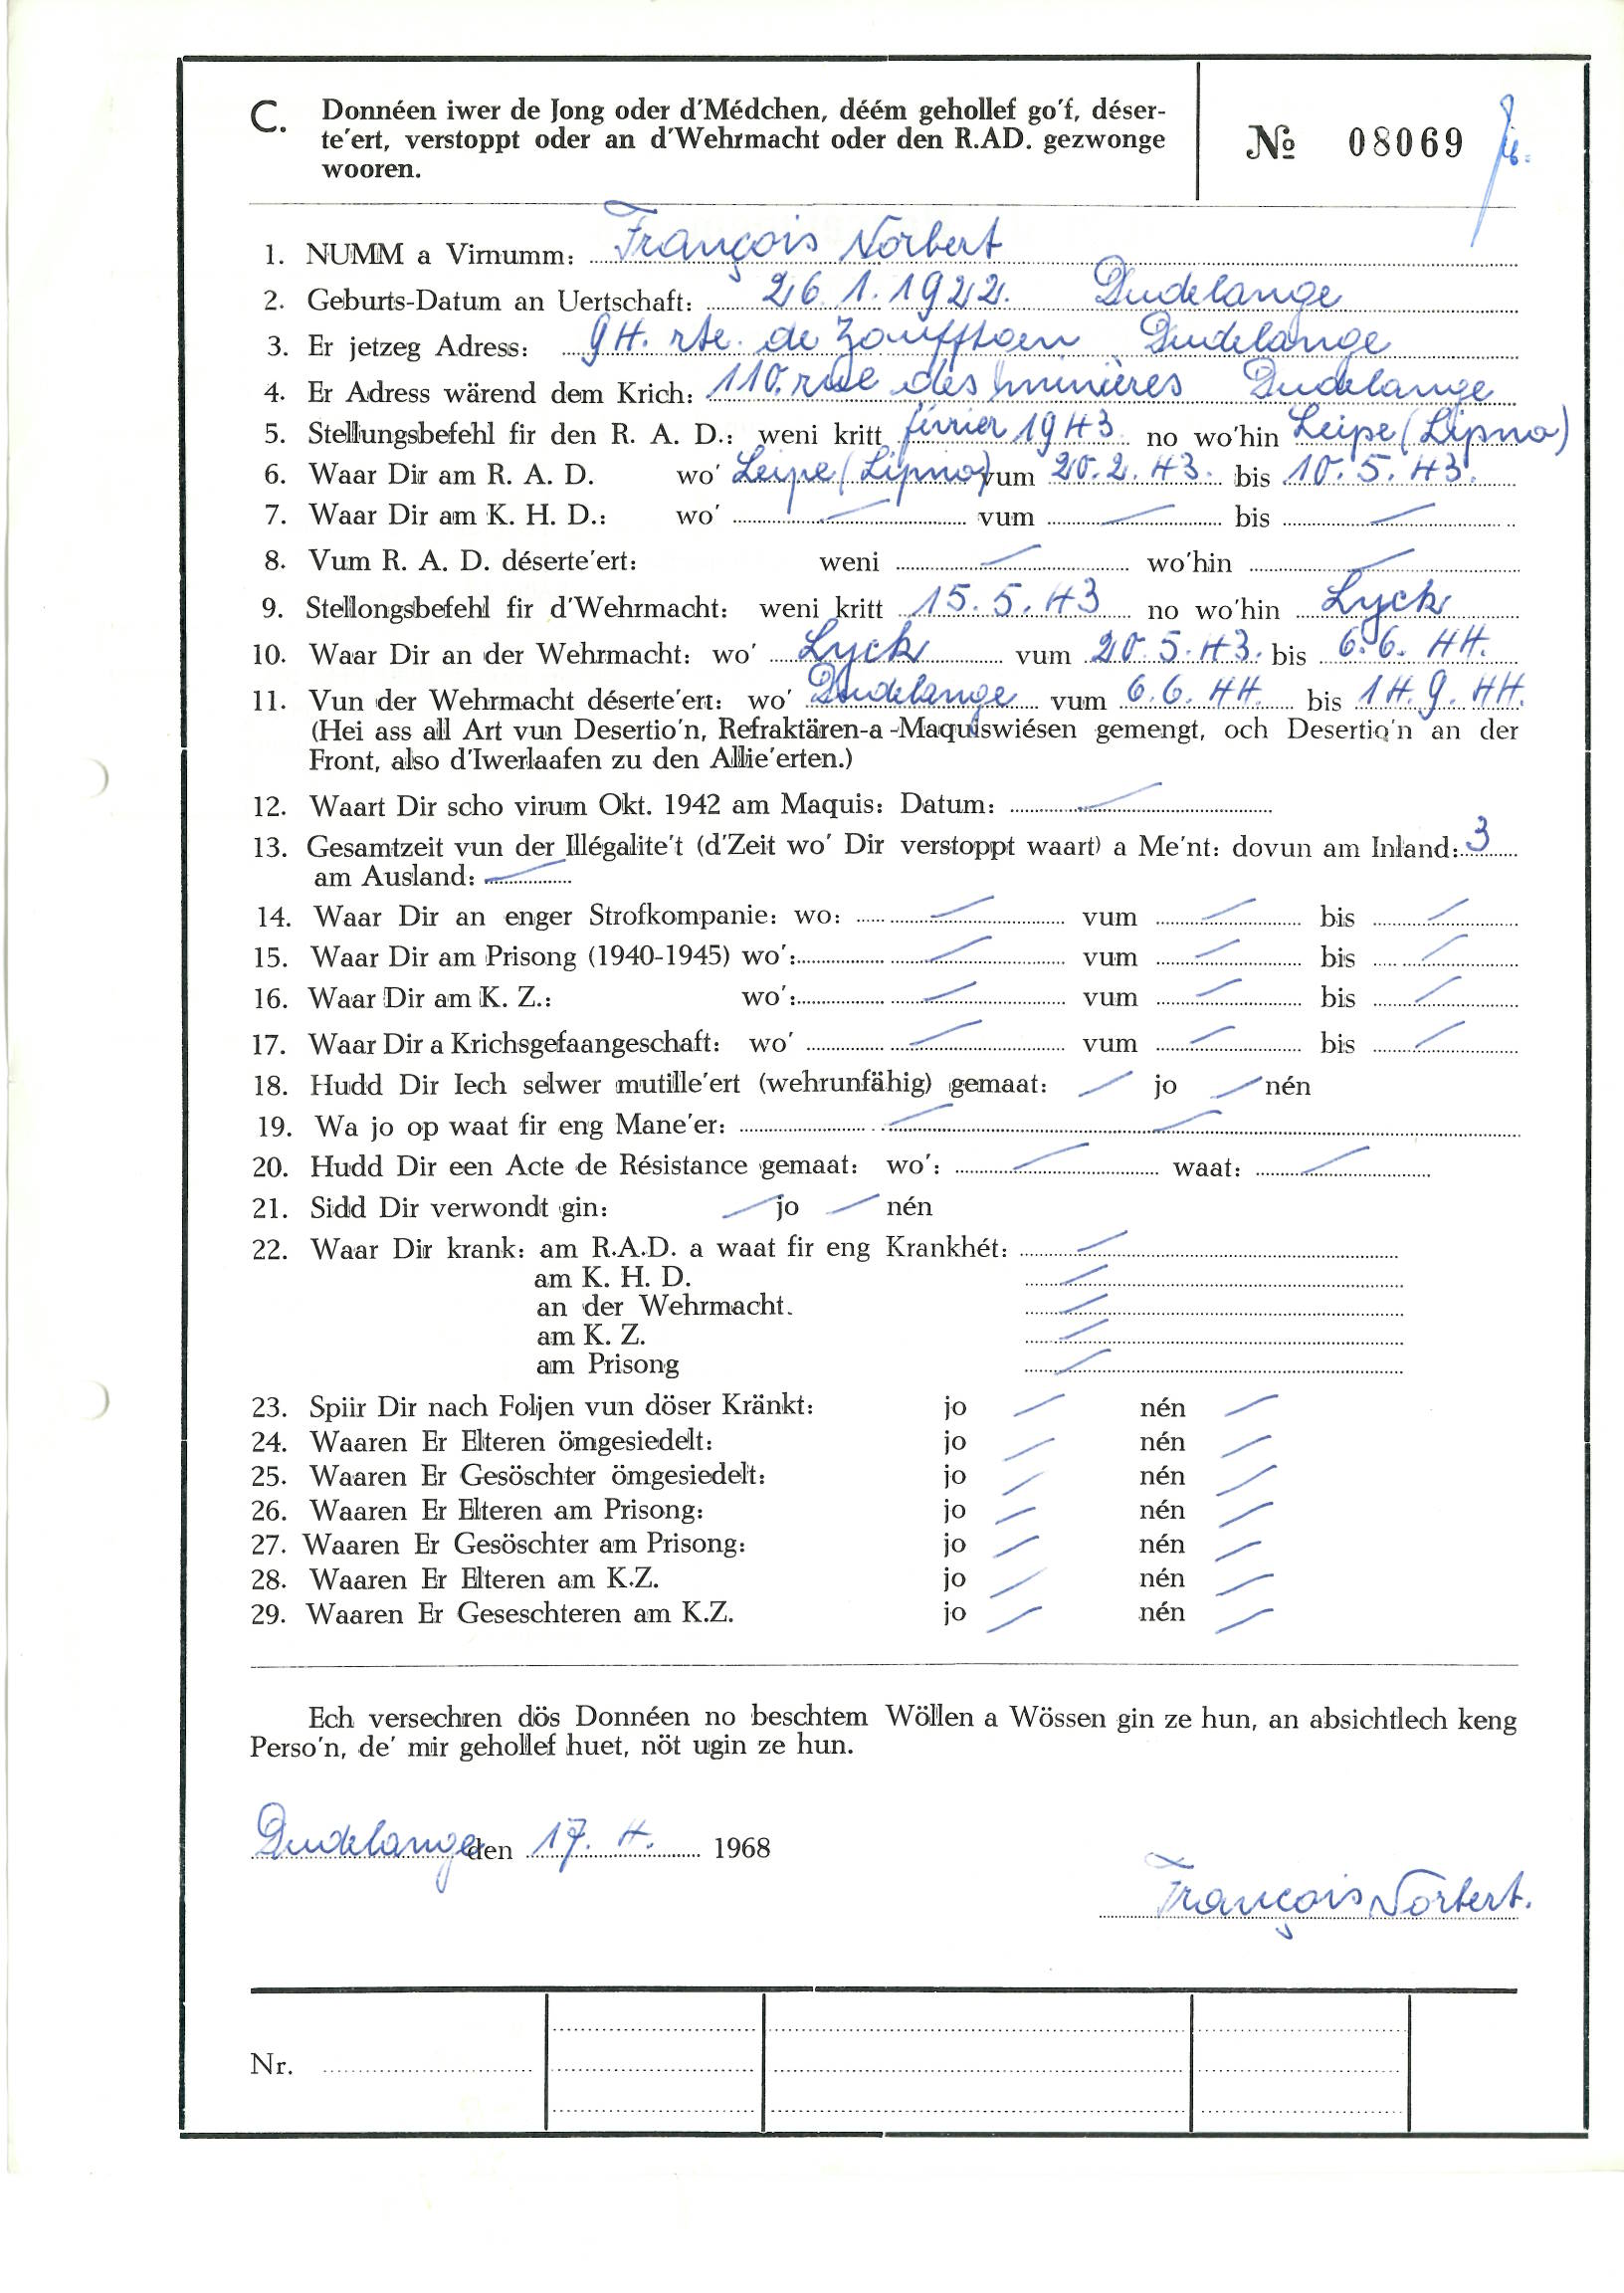 C. Donnéen iwer de Jong oder d'Médchen, déém gehollef go'f, déser-
te'ert, verstoppt oder an d'Wehrmacht oder den R.AD. gezwonge
wooren.
№ 08069
1. NUMM a Virnumm: François Norbert
2. Geburts-Datum an Uertschaft: 26.1.1922. Dudelange
3. Er jetzeg Adress: 94. rte. de Zoufftgen Dudelange
4. Er Adress wärend dem Krich: 110. rue des minières Dudelange
5. Stellungsbefehl fir den R. A. D.: weni kritt février 1943 no wo'hin Leipe (Lipno)
6. Waar Dir am R. A. D. wo' Leipe (Lipno) vum 20.2.43. bis 10.5.43.
7. Waar Dir am K. H. D.: wo' — vum — bis —
8. Vum R. A. D. déserte'ert: weni — wo'hin —
9. Stellongsbefehl fir d'Wehrmacht: weni kritt 15.5.43 no wo'hin Lyck
10. Waar Dir an der Wehrmacht: wo' Lyck vum 20.5.43. bis 6.6.44.
11. Vun der Wehrmacht déserte'ert: wo' Dudelange vum 6.6.44. bis 14.9.44.
(Hei ass all Art vun Desertio'n, Refraktären-a-Maquiswiésen gemengt, och Desertio'n an der
Front, also d'Iwerlaafen zu den Allie'erten.)
12. Waart Dir scho virum Okt. 1942 am Maquis: Datum: —
13. Gesamtzeit vun der Illégalite't (d'Zeit wo' Dir verstoppt waart) a Me'nt: dovun am Inland: 3
am Ausland: —
14. Waar Dir an enger Strofkompanie: wo: — vum — bis —
15. Waar Dir am Prisong (1940-1945) wo': — vum — bis —
16. Waar Dir am K. Z.: wo': — vum — bis —
17. Waar Dir a Krichsgefaangeschaft: wo' — vum — bis —
18. Hudd Dir Iech selwer mutille'ert (wehrunfähig) gemaat: — jo — nén
19. Wa jo op waat fir eng Mane'er: — —
20. Hudd Dir een Acte de Résistance gemaat: wo': — waat: —
21. Sidd Dir verwondt gin: — jo — nén
22. Waar Dir krank: am R.A.D. a waat fir eng Krankhét: —
am K. H. D. —
an der Wehrmacht. —
am K. Z. —
am Prisong —
23. Spiir Dir nach Foljen vun döser Kränkt: jo — nén —
24. Waaren Er Elteren ömgesiedelt: jo — nén —
25. Waaren Er Gesöschter ömgesiedelt: jo — nén —
26. Waaren Er Elteren am Prisong: jo — nén —
27. Waaren Er Gesöschter am Prisong: jo — nén —
28. Waaren Er Elteren am K.Z. jo — nén —
29. Waaren Er Geseschteren am K.Z. jo — nén —
Ech versechren dös Donnéen no beschtem Wöllen a Wössen gin ze hun, an absichtlech keng
Perso'n, de' mir gehollef huet, nöt ugin ze hun.
Dudelange den 17. 4. 1968
François Norbert.
Nr.